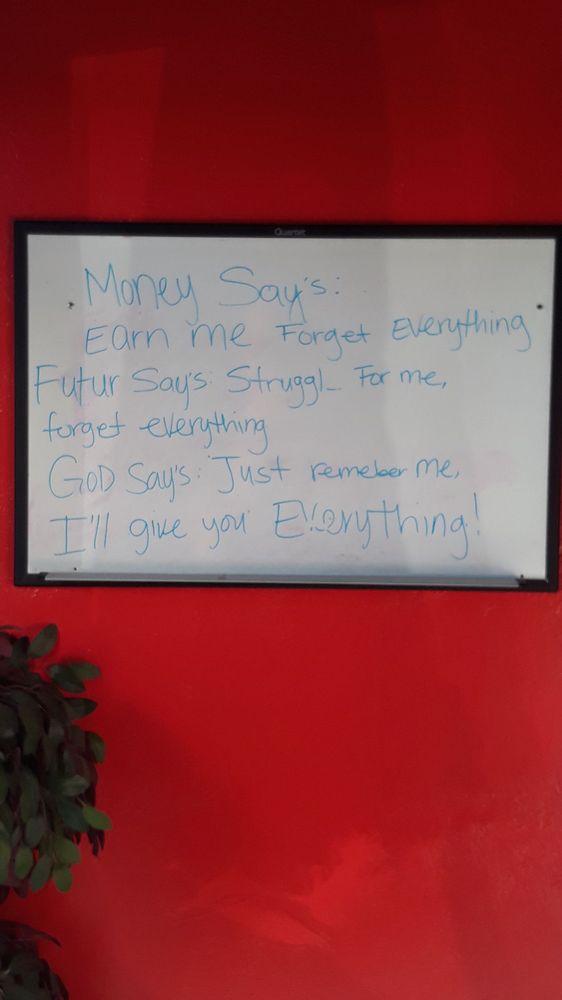 Quartet
Money Say's:
Earn me Forget Everything
Futur Say's: Struggl_ For me,
forget everything
GOD Say's: Just remeber me,
I'll give you Everything!